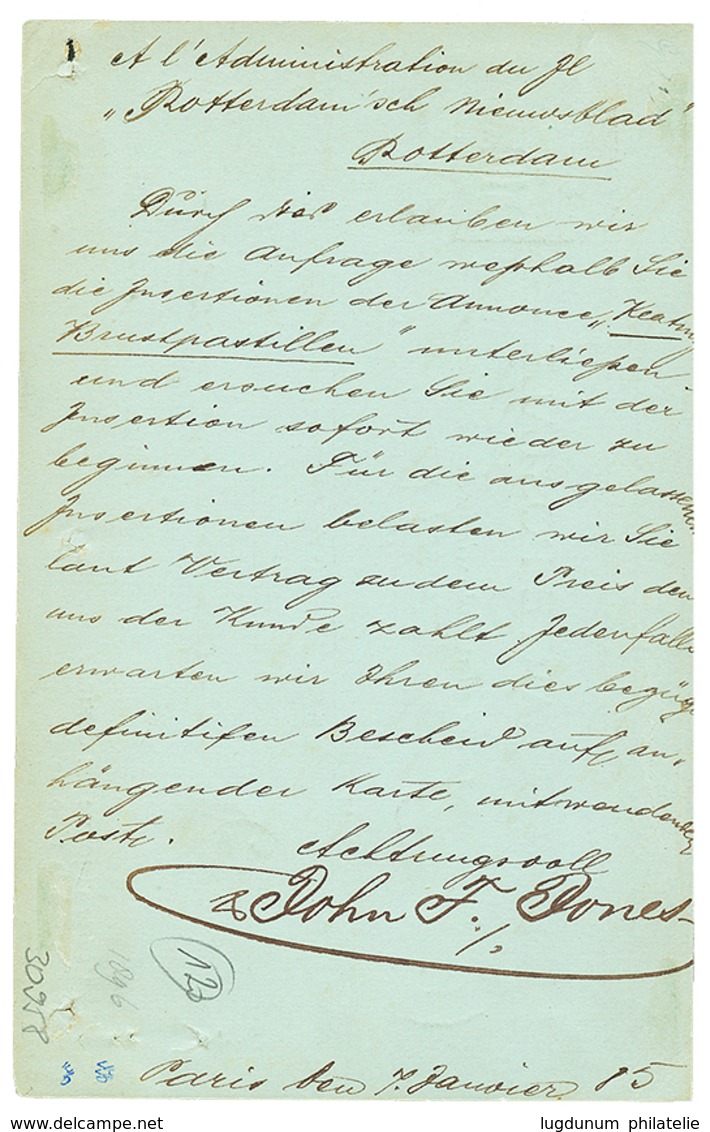 A l'Administration du Jl
„Rotterdam'sch Nieuwsblad"
Rotterdam
Durch dies erlauben wir
uns die Anfrage weshalb Sie
die Insertionen der Annonce „Keating
Brustpastillen" unterliesen
und ersuchen Sie mit der
Insertion sofort wieder zu
beginnen. Für die ausgelassenen
Insertionen belasten wir Sie
laut Vertrag zu dem Preis den
uns der Kunde zahlt. Jedenfalls
erwarten wir Ihren diesbezügl
definitifen Bescheid auf an-
hängender Karte, mitwendender
Post.
Achtungsvoll
John F. Jones
30958
1896
120
Paris den 7. Janvier 85
lugdunum philatelie